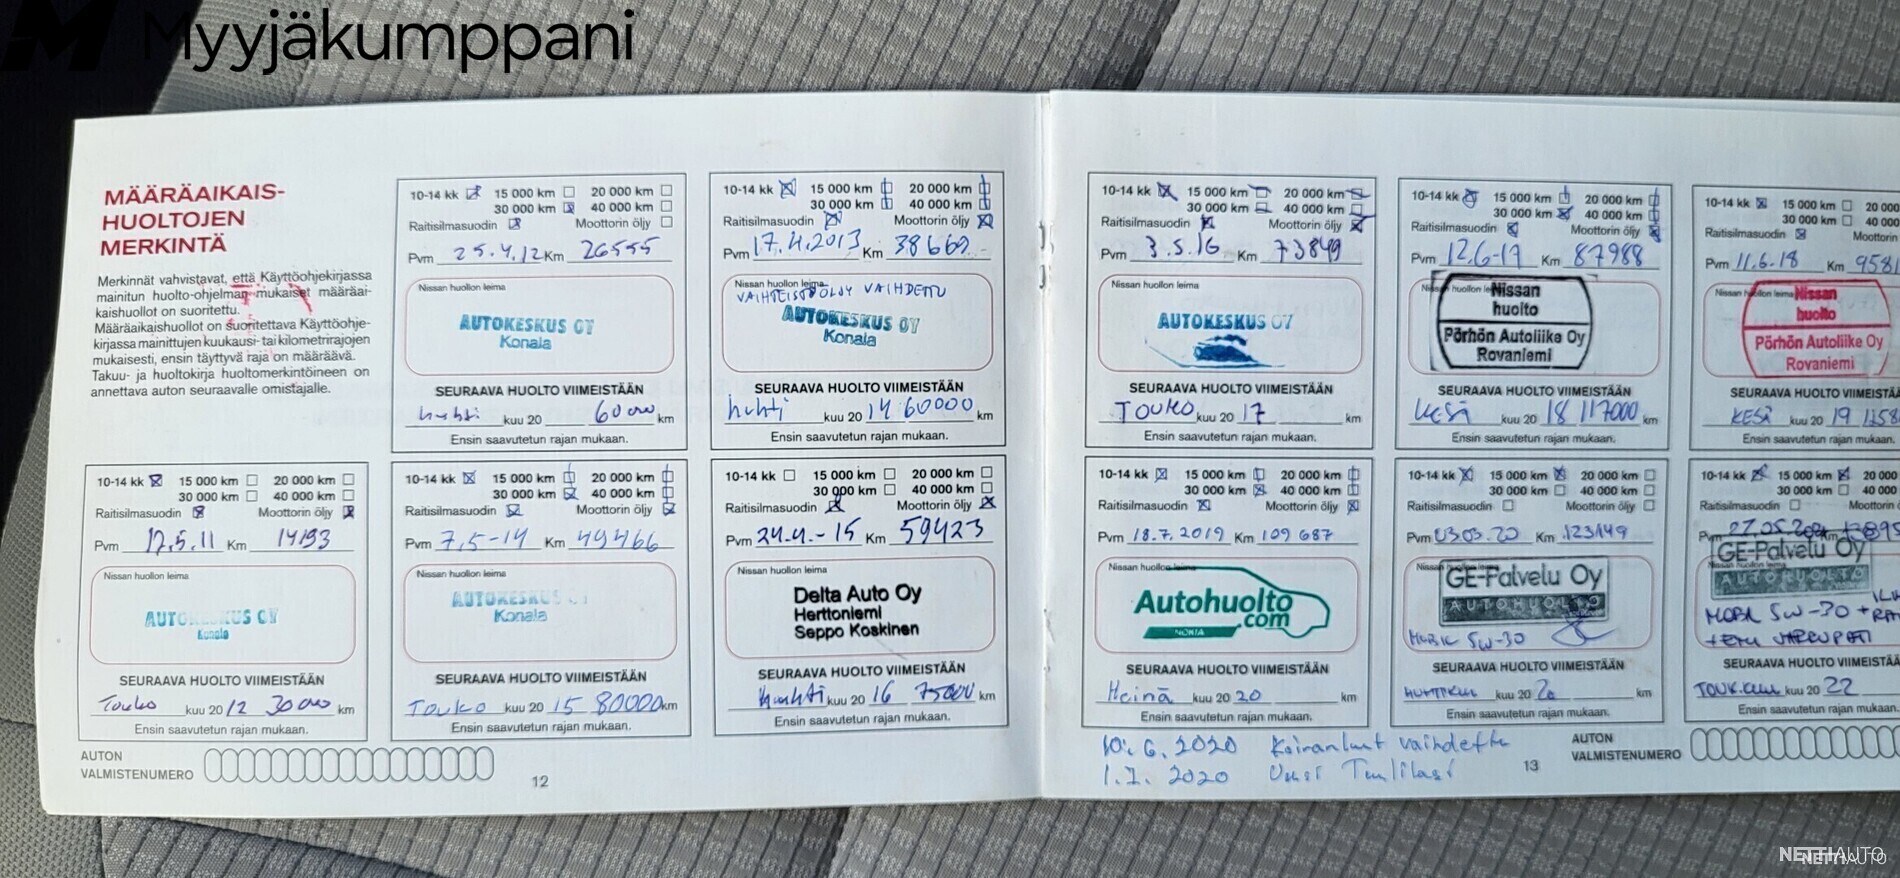 Myyjäkumppani
MÄÄRÄAIKAIS-
HUOLTOJEN
MERKINTÄ
Merkinnät vahvistavat, että Käyttöohjekirjassa
mainitun huolto-ohjelman mukaiset määräai-
kaishuollot on suoritettu.
Määräaikaishuollot on suoritettava Käyttöohje-
kirjassa mainittujen kuukausi- tai kilometrirajojen
mukaisesti, ensin täyttyvä raja on määräävä.
Takuu- ja huoltokirja huoltomerkintöineen on
annettava auton seuraavalle omistajalle.
10-14 kk 15 000 km 20 000 km
30 000 km 40 000 km
Raitisilmasuodin Moottorin öljy
Pvm 25.4.12 Km 26555
Nissan huollon leima
AUTOKESKUS OY
Konala
SEURAAVA HUOLTO VIIMEISTÄÄN
huhti kuu 20 60000 km
Ensin saavutetun rajan mukaan.
10-14 kk 15 000 km 20 000 km
30 000 km 40 000 km
Raitisilmasuodin Moottorin öljy
Pvm 17.4.2013 Km 38669.-
Nissan huollon leima
VAIHTEISTOÖLJY VAIHDETTU
AUTOKESKUS OY
Konala
SEURAAVA HUOLTO VIIMEISTÄÄN
huhti kuu 20 14 60000 km
Ensin saavutetun rajan mukaan.
10-14 kk 15 000 km 20 000 km
30 000 km 40 000 km
Raitisilmasuodin Moottorin öljy
Pvm 3.5.16 Km 73849
Nissan huollon leima
AUTOKESKUS OY
SEURAAVA HUOLTO VIIMEISTÄÄN
TOUKO kuu 20 17 km
Ensin saavutetun rajan mukaan.
10-14 kk 15 000 km 20 000 km
30 000 km 40 000 km
Raitisilmasuodin Moottorin öljy
Pvm 12.6-17 Km 87988
Nissan huollon leima
Nissan
huolto
Pörhön Autoliike Oy
Rovaniemi
SEURAAVA HUOLTO VIIMEISTÄÄN
KESÄ kuu 20 18 117000 km
Ensin saavutetun rajan mukaan.
10-14 kk 15 000 km 20 000
30 000 km 40 000
Raitisilmasuodin Moottorin
Pvm 11.6.18 Km 9581
Nissan huollon leima
Nissan
huolto
Pörhön Autoliike Oy
Rovaniemi
SEURAAVA HUOLTO VIIMEISTÄ
KESÄ kuu 20 19 1258
Ensin saavutetun rajan mukaan.
10-14 kk 15 000 km 20 000 km
30 000 km 40 000 km
Raitisilmasuodin Moottorin öljy
Pvm 12.5.11 Km 14193
Nissan huollon leima
AUTOKESKUS OY
Konala
SEURAAVA HUOLTO VIIMEISTÄÄN
Touko kuu 20 12 30000 km
Ensin saavutetun rajan mukaan.
10-14 kk 15 000 km 20 000 km
30 000 km 40 000 km
Raitisilmasuodin Moottorin öljy
Pvm 7.5-14 Km 49466
Nissan huollon leima
AUTOKESKUS
Konala
SEURAAVA HUOLTO VIIMEISTÄÄN
Touko kuu 20 15 80000 km
Ensin saavutetun rajan mukaan.
10-14 kk 15 000 km 20 000 km
30 000 km 40 000 km
Raitisilmasuodin Moottorin öljy
Pvm 24.4.-15 Km 59423
Nissan huollon leima
Delta Auto Oy
Herttoniemi
Seppo Koskinen
SEURAAVA HUOLTO VIIMEISTÄÄN
Huhti kuu 20 16 75000 km
Ensin saavutetun rajan mukaan.
10-14 kk 15 000 km 20 000 km
30 000 km 40 000 km
Raitisilmasuodin Moottorin öljy
Pvm 18.7.2019 Km 109 687
Nissan huollon leima
Autohuolto
.com
NOKIA
SEURAAVA HUOLTO VIIMEISTÄÄN
Heinä kuu 20 20 km
Ensin saavutetun rajan mukaan.
10-14 kk 15 000 km 20 000 km
30 000 km 40 000 km
Raitisilmasuodin Moottorin öljy
Pvm 03.03.20 Km 123149
Nissan huollon leima
GE-Palvelu Oy
AUTOHUOLTO
MOBIL 5W-30
SEURAAVA HUOLTO VIIMEISTÄÄN
kuu 20 km
Ensin saavutetun rajan mukaan.
10-14 kk 15 000 km 20 000
30 000 km 40 000
Raitisilmasuodin Moottorin öljy
Pvm 27.05.2021 Km
GE-Palvelu Oy
Nissan huollon leima
AUTOHUOLTO
MOBIL 5W-30 +
SEURAAVA HUOLTO VIIMEISTÄÄ
kuu 20 22
Ensin saavutetun rajan mukaan.
AUTON
VALMISTENUMERO
12
10.6.2020 Koiranluut vaihdettu
1.7.2020 Uusi Tuulilasi
13
AUTON
VALMISTENUMERO
NETTIAUTO
NETTIAUTO